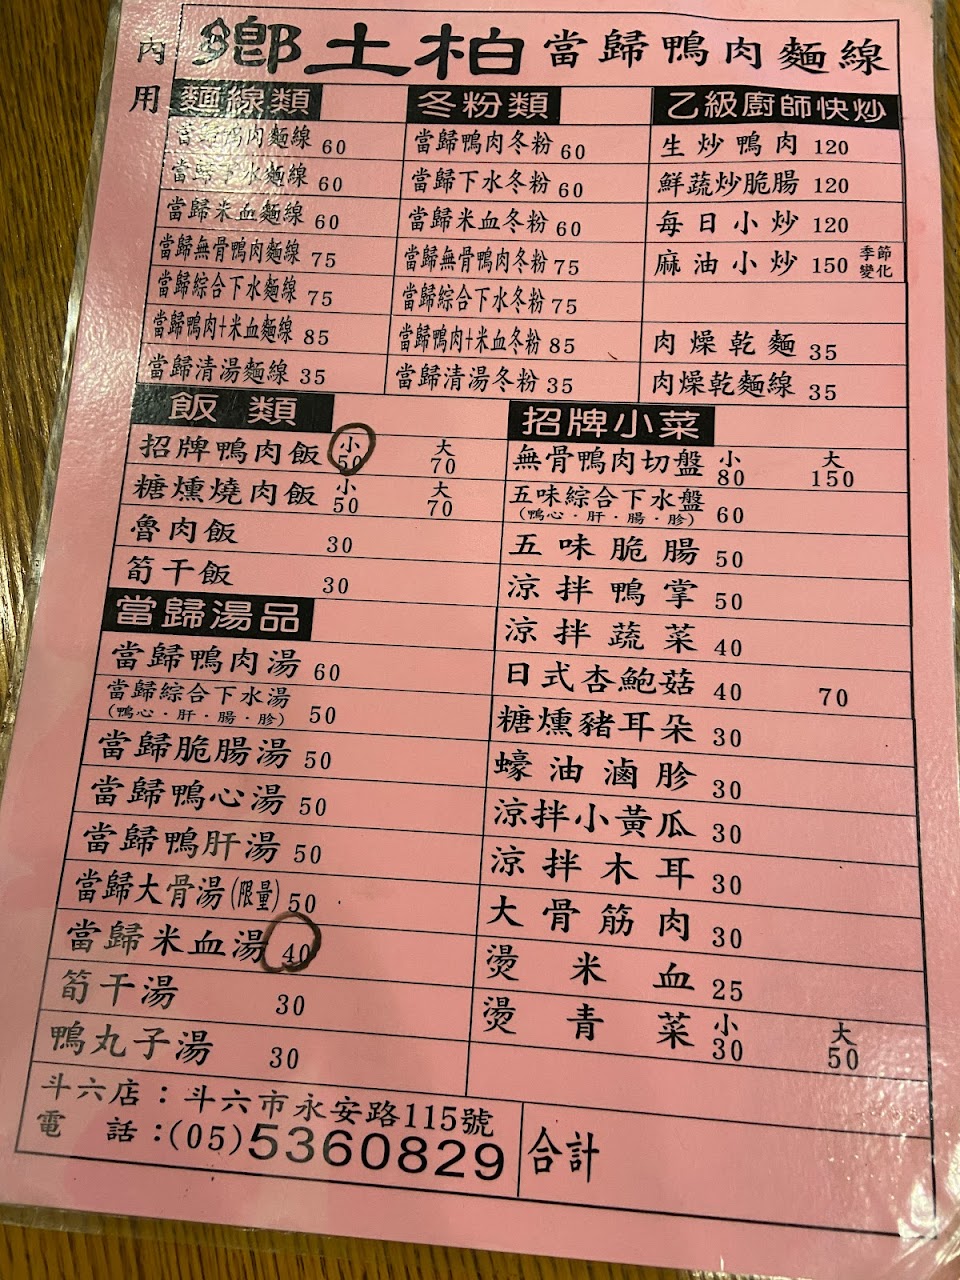 內用
鄉土柏 當歸鴨肉麵線
麵線類
當歸鴨肉麵線 60
當歸下水麵線 60
當歸米血麵線 60
當歸無骨鴨肉麵線 75
當歸綜合下水麵線 75
當歸鴨肉+米血麵線 85
當歸清湯麵線 35
冬粉類
當歸鴨肉冬粉 60
當歸下水冬粉 60
當歸米血冬粉 60
當歸無骨鴨肉冬粉 75
當歸綜合下水冬粉 75
當歸鴨肉+米血冬粉 85
當歸清湯冬粉 35
乙級廚師快炒
生炒鴨肉 120
鮮蔬炒脆腸 120
每日小炒 120
麻油小炒 150 季節變化
肉燥乾麵 35
肉燥乾麵線 35
飯類
招牌鴨肉飯 小50 大70
糖燻燒肉飯 小50 大70
魯肉飯 30
筍干飯 30
當歸湯品
當歸鴨肉湯 60
當歸綜合下水湯 50
(鴨心·肝·腸·胗)
當歸脆腸湯 50
當歸鴨心湯 50
當歸鴨肝湯 50
當歸大骨湯(限量) 50
當歸米血湯 40
筍干湯 30
鴨丸子湯 30
招牌小菜
無骨鴨肉切盤 小80 大150
五味綜合下水盤 60
(鴨心·肝·腸·胗)
五味脆腸 50
涼拌鴨掌 50
涼拌蔬菜 40
日式杏鮑菇 40 70
糖燻豬耳朵 30
蠔油滷胗 30
涼拌小黃瓜 30
涼拌木耳 30
大骨筋肉 30
燙米血 25
燙青菜 小30 大50
斗六店：斗六市永安路115號
電話：(05)5360829
合計